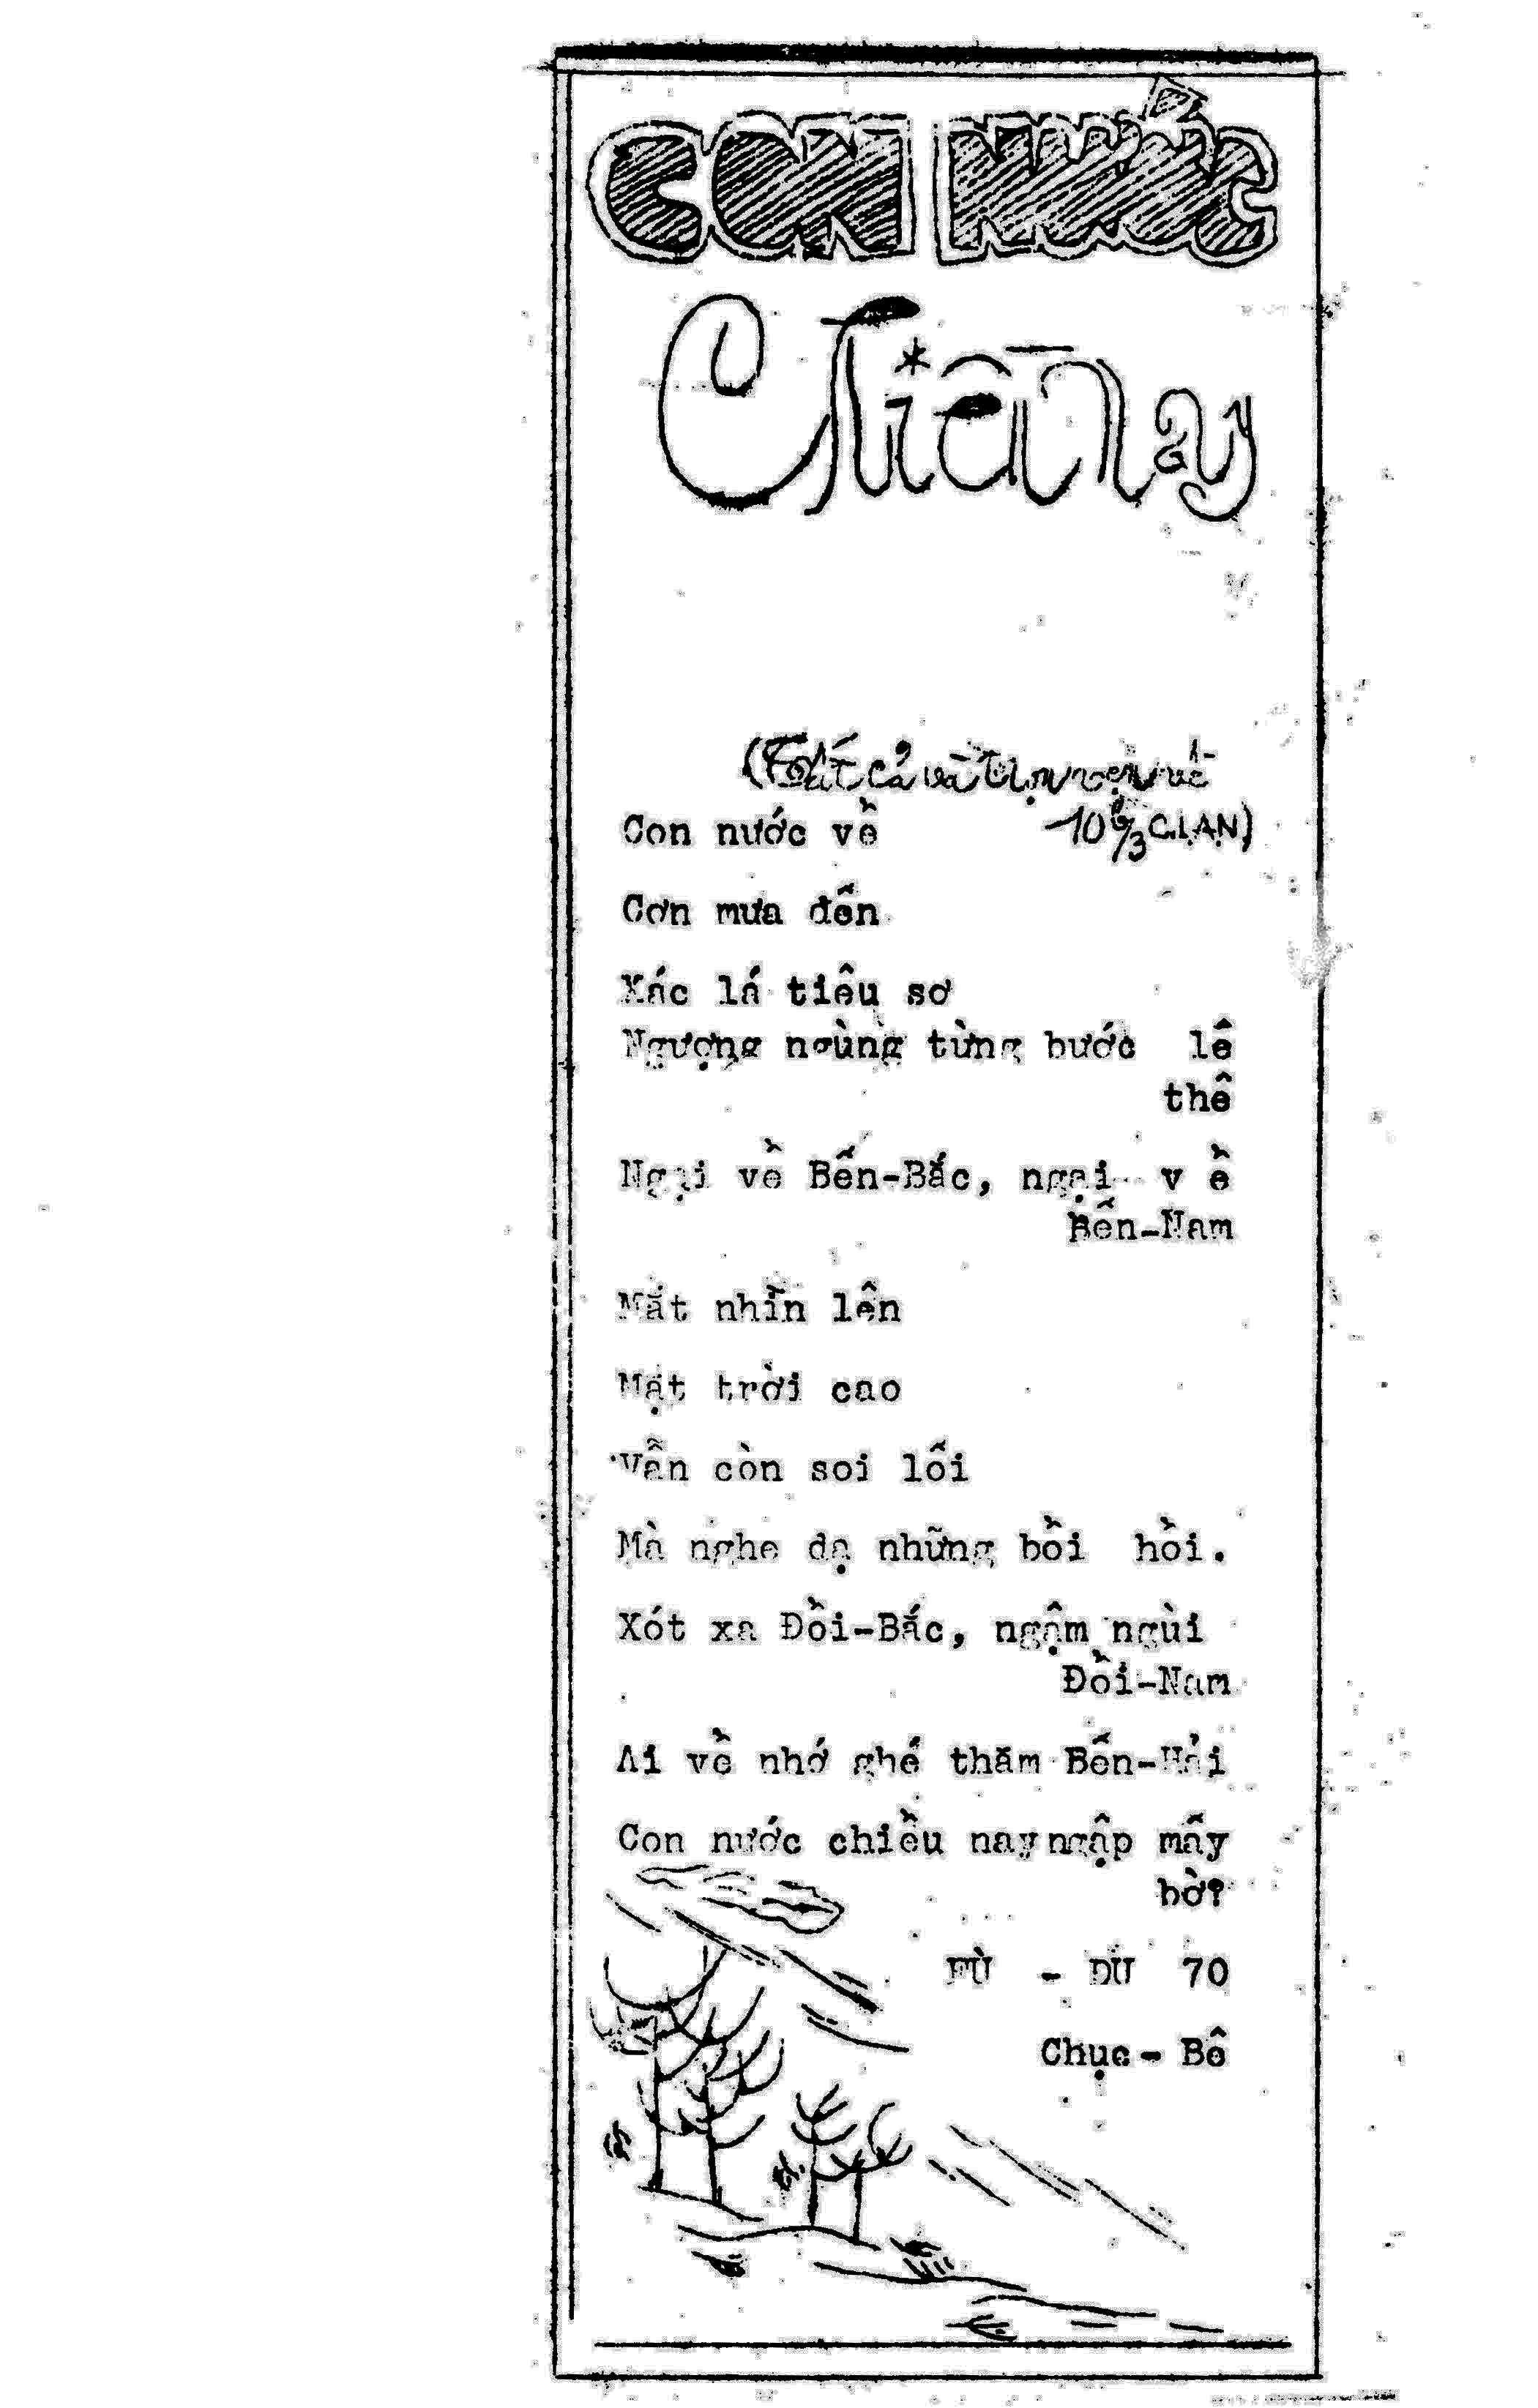 CON NƯỚC
Chiều nay
(Tất cả và trọn vẹn về
10 6/3 C.I.A.N)
Con nước về
Cơn mưa đến
Xác lá tiêu sơ
Ngượng ngùng từng bước lê
thê
Ngại về Bến-Bắc, ngại v ề
Bến-Nam
Mắt nhìn lên
Mặt trời cao
Vẫn còn soi lối
Mà nghe dạ những bồi hồi.
Xót xa Đồi-Bắc, ngậm ngùi
Đồi-Nam
Ai về nhớ ghé thăm Bến-Hải
Con nước chiều nay ngập mấy
bờ?
FÙ - DU 70
Chục - Bô